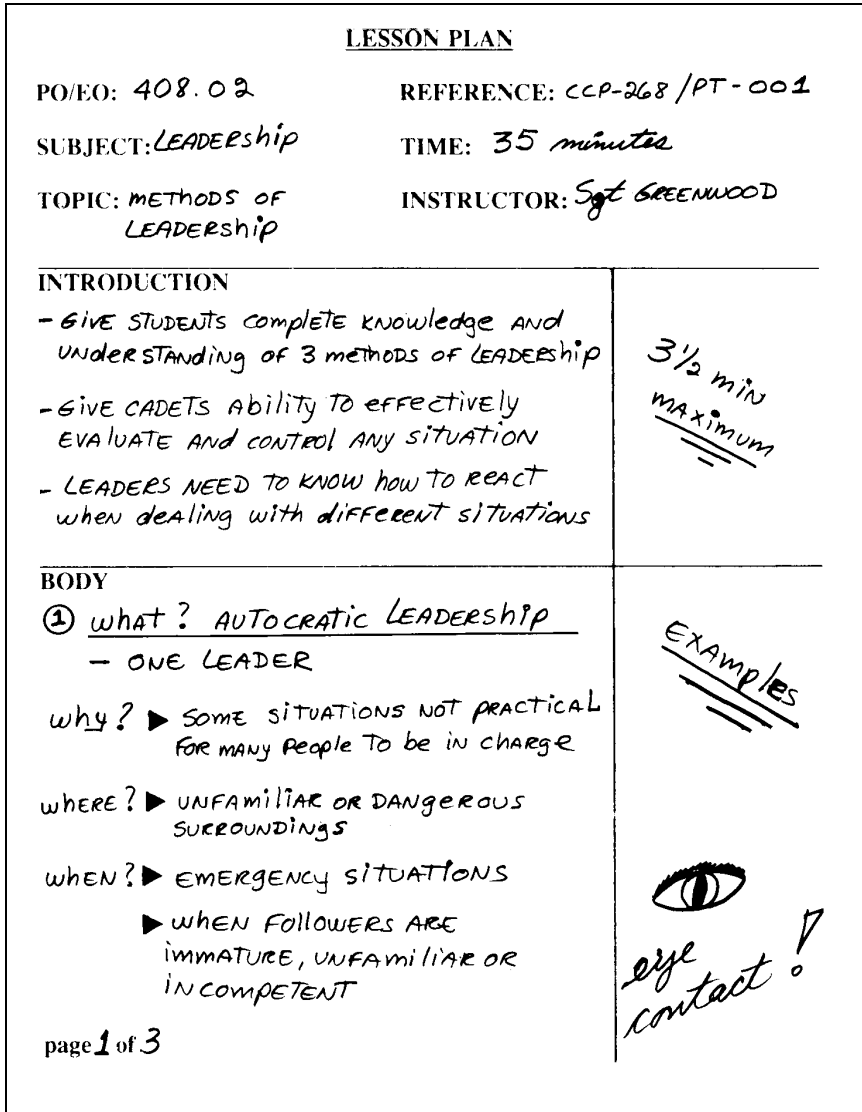 LESSON PLAN
PO/EO: 408.02
REFERENCE: CCP-268/PT-001
SUBJECT: LEADERship
TIME: 35 minutes
TOPIC: METHODS OF
LEADERship
INSTRUCTOR: Sgt GREENWOOD
INTRODUCTION
- GIVE STUDENTS COMPLETE KNOWLEDGE AND
UNDERSTANDING OF 3 METHODS OF LEADERSHIP
- GIVE CADETS ABILITY TO EFFECTIVELY
EVALUATE AND CONTROL ANY SITUATION
- LEADERS NEED TO KNOW HOW TO REACT
WHEN DEALING WITH DIFFERENT SITUATIONS
3 1/2 MIN
MAXIMUM
BODY
① WHAT? AUTOCRATIC LEADERSHIP
- ONE LEADER
WHY? ▶ SOME SITUATIONS NOT PRACTICAL
FOR MANY PEOPLE TO BE IN CHARGE
WHERE? ▶ UNFAMILIAR OR DANGEROUS
SURROUNDINGS
WHEN? ▶ EMERGENCY SITUATIONS
▶ WHEN FOLLOWERS ARE
IMMATURE, UNFAMILIAR OR
INCOMPETENT
EXAMPLES
eye
contact!
page 1 of 3